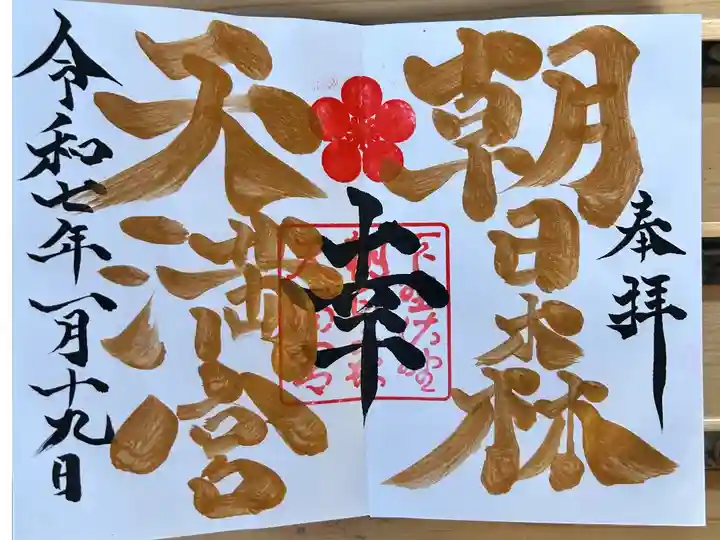 奉拝
朝日森
天満宮
幸
令和七年一月十九日